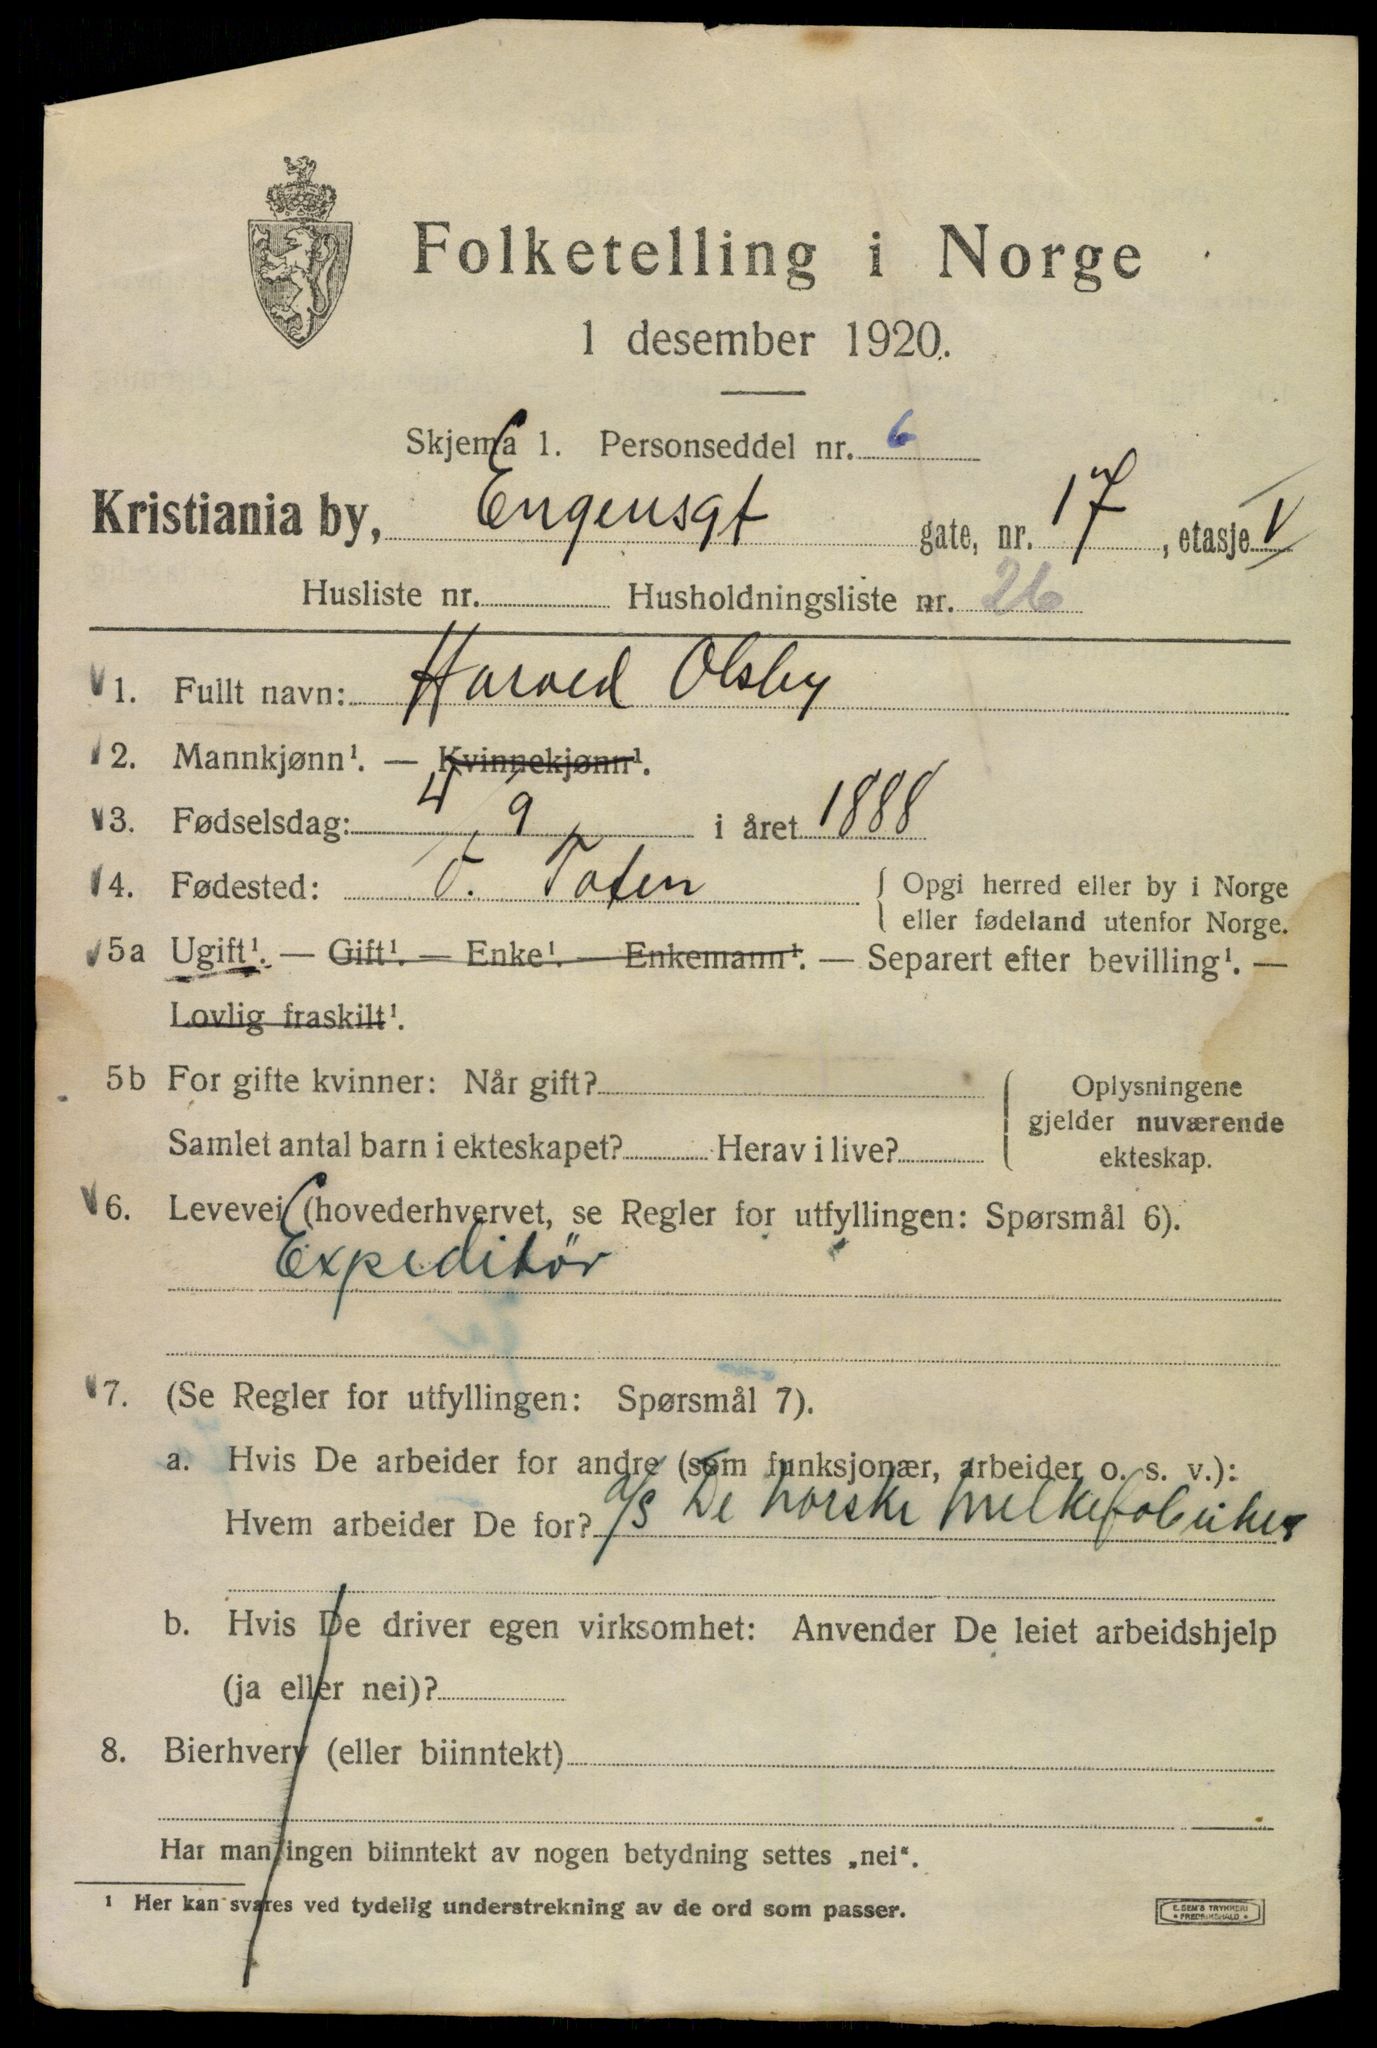 Folketelling i Norge
1 desember 1920.
Skjema 1. Personseddel nr. 6
Kristiania by, Engensgt gate, nr. 17, etasje V
Husliste nr. Husholdningsliste nr. 26
1. Fullt navn: Harald Olsby
2. Mannkjønn¹. — Kvinnekjønn¹.
3. Fødselsdag: 4/9 i året 1888
4. Fødested: Ø. Toten { Opgi herred eller by i Norge
eller fødeland utenfor Norge.
5a Ugift¹. — Gift¹. — Enke¹. — Enkemann¹. — Separert efter bevilling¹. —
Lovlig fraskilt¹.
5b For gifte kvinner: Når gift? { Oplysningene
gjelder nuværende
Samlet antal barn i ekteskapet? Herav i live? ekteskap.
6. Levevei (hovederhvervet, se Regler for utfyllingen: Spørsmål 6).
Expeditør
7. (Se Regler for utfyllingen: Spørsmål 7).
a. Hvis De arbeider for andre (som funksjonær, arbeider o. s. v.):
Hvem arbeider De for? a/s De norske melkefabriker
b. Hvis De driver egen virksomhet: Anvender De leiet arbeidshjelp
(ja eller nei)?
8. Bierhverv (eller biinntekt)
Har man ingen biinntekt av nogen betydning settes „nei“.
¹ Her kan svares ved tydelig understrekning av de ord som passer.
E. SEM'S TRYKKERI
* FREDRIKSHALD *